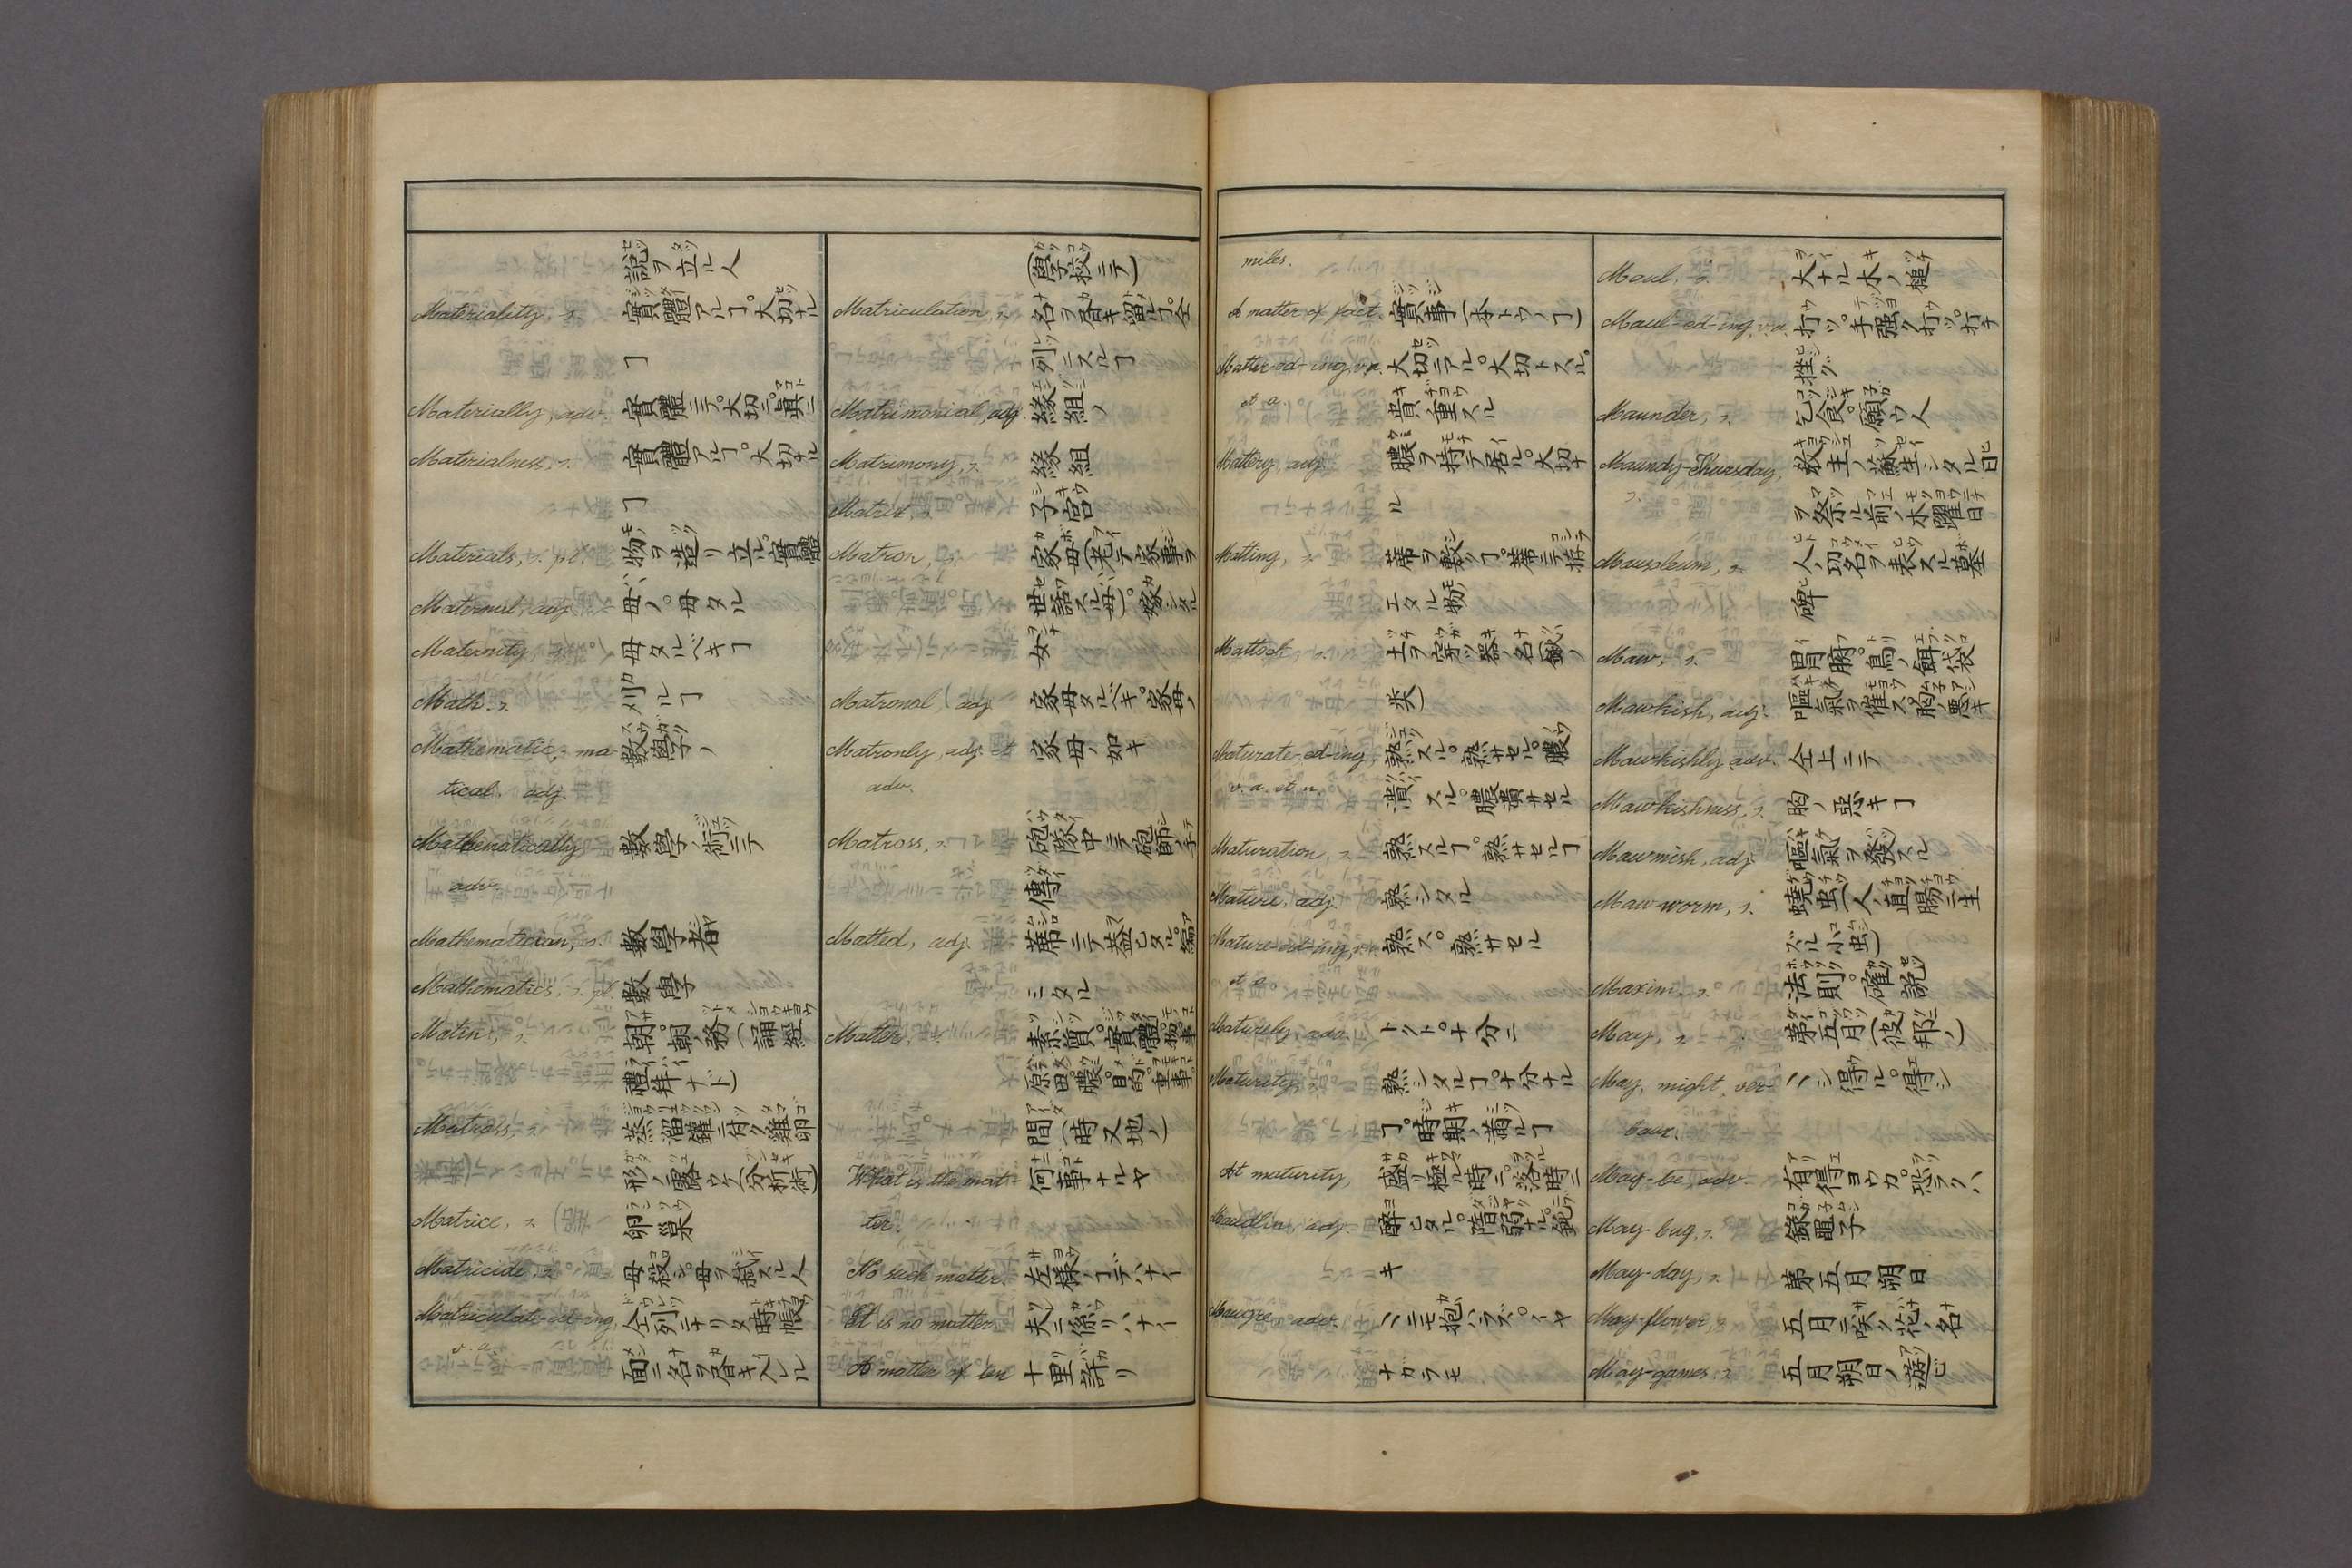 説ヲ立ル人
Materiality, s. 實體アルヿ。大切ナル
ヿ
Materially, adv. 實體ニテ。大切ニ。真ニ
Materialness, s. 實體アルヿ。大切ナル
ヿ
Materials, s. pl. 物ヲ造リ立ル。實體
Maternal, adj. 母ノ。母タル
Maternity, s. 母タルベキヿ
Math, s. 刈ルヿ
Mathematic, -ma- 數學ノ
tical. adj.
Mathematically 數學ノ術ニテ
adv.
Mathematician, s. 數學者
Mathematics, s. pl. 數學
Matin, s. 朝。朝ノ務(誦經
禮拜ナド)
Matrass, s. 蒸溜鑵ニ用ク雞卵
形ノ露ウケ(分析術)
Matrice, s. 卵巣
Matricide, s. 母殺シ。母ヲ弑スル人
Matriculate-ed-ing, 仝列ニナリタ時帳
v. a. 面ニ名ヲ書キ入レル
(學校ニテ)
Matriculation, s. 名ヲ書キ留ルヿ。仝
列ニスルヿ
Matrimonial, adj. 縁組ノ
Matrimony, s. 縁組
Matrix, s. 子宮
Matron, s. 家母(老テ家事ヲ
世話スル母)。嫁シタル
女
Matronal, adj. 家母タルベキ。家母ノ
Matronly, adj. et 家母ノ如キ
adv.
Matross, s. 砲隊中ニテ砲師ノ手
傳
Matted, adj. 蓆ニテ蓋ヒタル。編
ミタル
Matter, s. 素質。實體。物事
原由。膿。目的。重事。
間(時又地ノ)
What is the mat- 何事ナルヤ
ter.
No such matter. 左樣ノヿデハナイ
It is no matter 夫ニ係リハナイ
A matter of ten 十里許リ
miles.
A matter of fact. 實事(本トウノヿ)
Matter-ed-ing, v.n. 大切ニアル。大切トスル。
et a. 貴ノ重スル
Mattery, adj. 膿ヲ持テ居ル。大切ナ
ル
Matting, s. 蓆ヲ敷クヿ。蓆ニテ拵
エタル物
Mattock, s. 土ヲ穿ツ器ノ名(鍬ノ
类)
Maturate-ed-ing, 熟スル。熟サセル。膿
v. a. et n. 潰スル。膿潰サセル
Maturation, s. 熟スルヿ。熟サセルヿ
Mature, adj. 熟シタル
Mature-ed-ing, v.n. 熟ス。熟サセル
et a.
Maturely, adv. トクト。十分ニ
Maturity, 熟シタルヿ。十分ナル
ヿ。時期ノ満ルヿ
At maturity, 盛リ極ル時ニ。落時ニ
Maudlin, adj. 醉ヒタル。惰弱ナル。鈍
キ
Maugre, adv. ニモ抱ハラズ。イヤ
ナガラモ
Maul, s. 大ナル木ノ槌
Maul-ed-ing, v.a. 打ツ。手强ク打ツ。打チ
挫グ
Maunder, s. 乞食。願ウ人
Maundy-Thursday, 救主ノ蘇生シタル日
s. ヲ祭ル前ノ木曜日
Mausoleum, s. 人ノ功名ヲ表スル墓
碑
Maw, s. 胃腑。鳥ノ餌袋
Mawkish, adj. 嘔氣ヲ催ス。胸ノ悪キ
Mawkishly, adv. 仝上ニテ
Mawkishness, s. 胸ノ惡キヿ
Mawmish, adj. 嘔氣ヲ發スル
Maw-worm, s. 蟯虫(人ノ直腸ニ生
ズル小虫)
Maxim, s. 法則。確説
May, s. 第五月(彼邦ノ)
May, might, ver- ベシ得ル。得シ
baux.
May-be, adv. 有得ヨウカ。恐ラクハ
May-bug, s. 金黽子
May-day, s. 第五月朔日
May-flower, s. 五月ニ咲ク花ノ名
May-games, s. 五月朔日ノ遊ビ